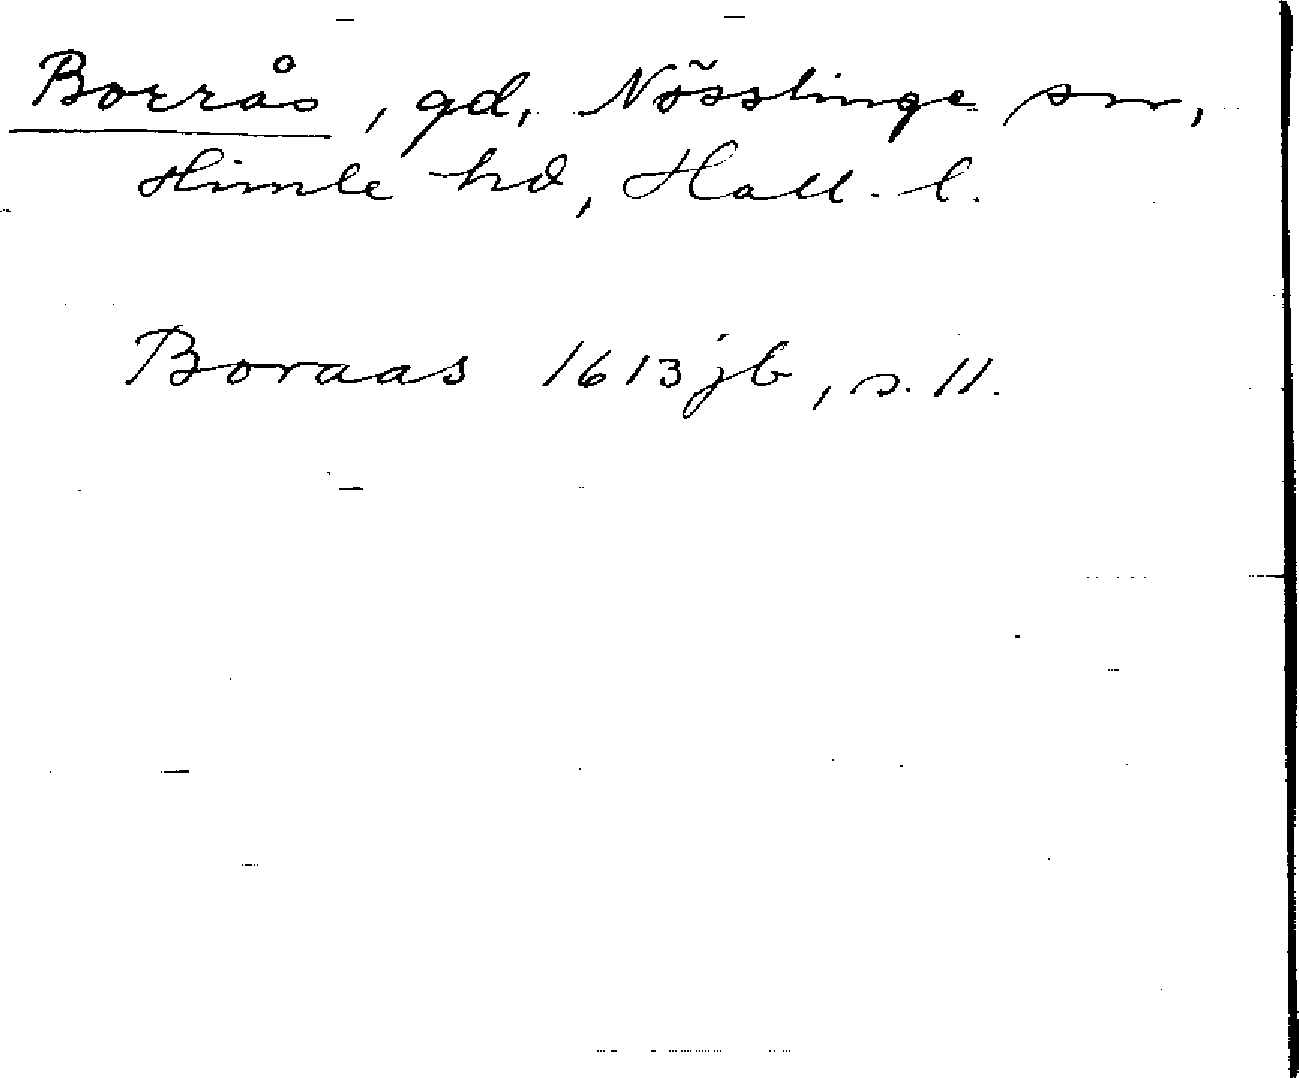 Borrås, gd, Nösslinge sn,
Himle hd, Hall. l.
Boraas 1613 jb, s. 11.